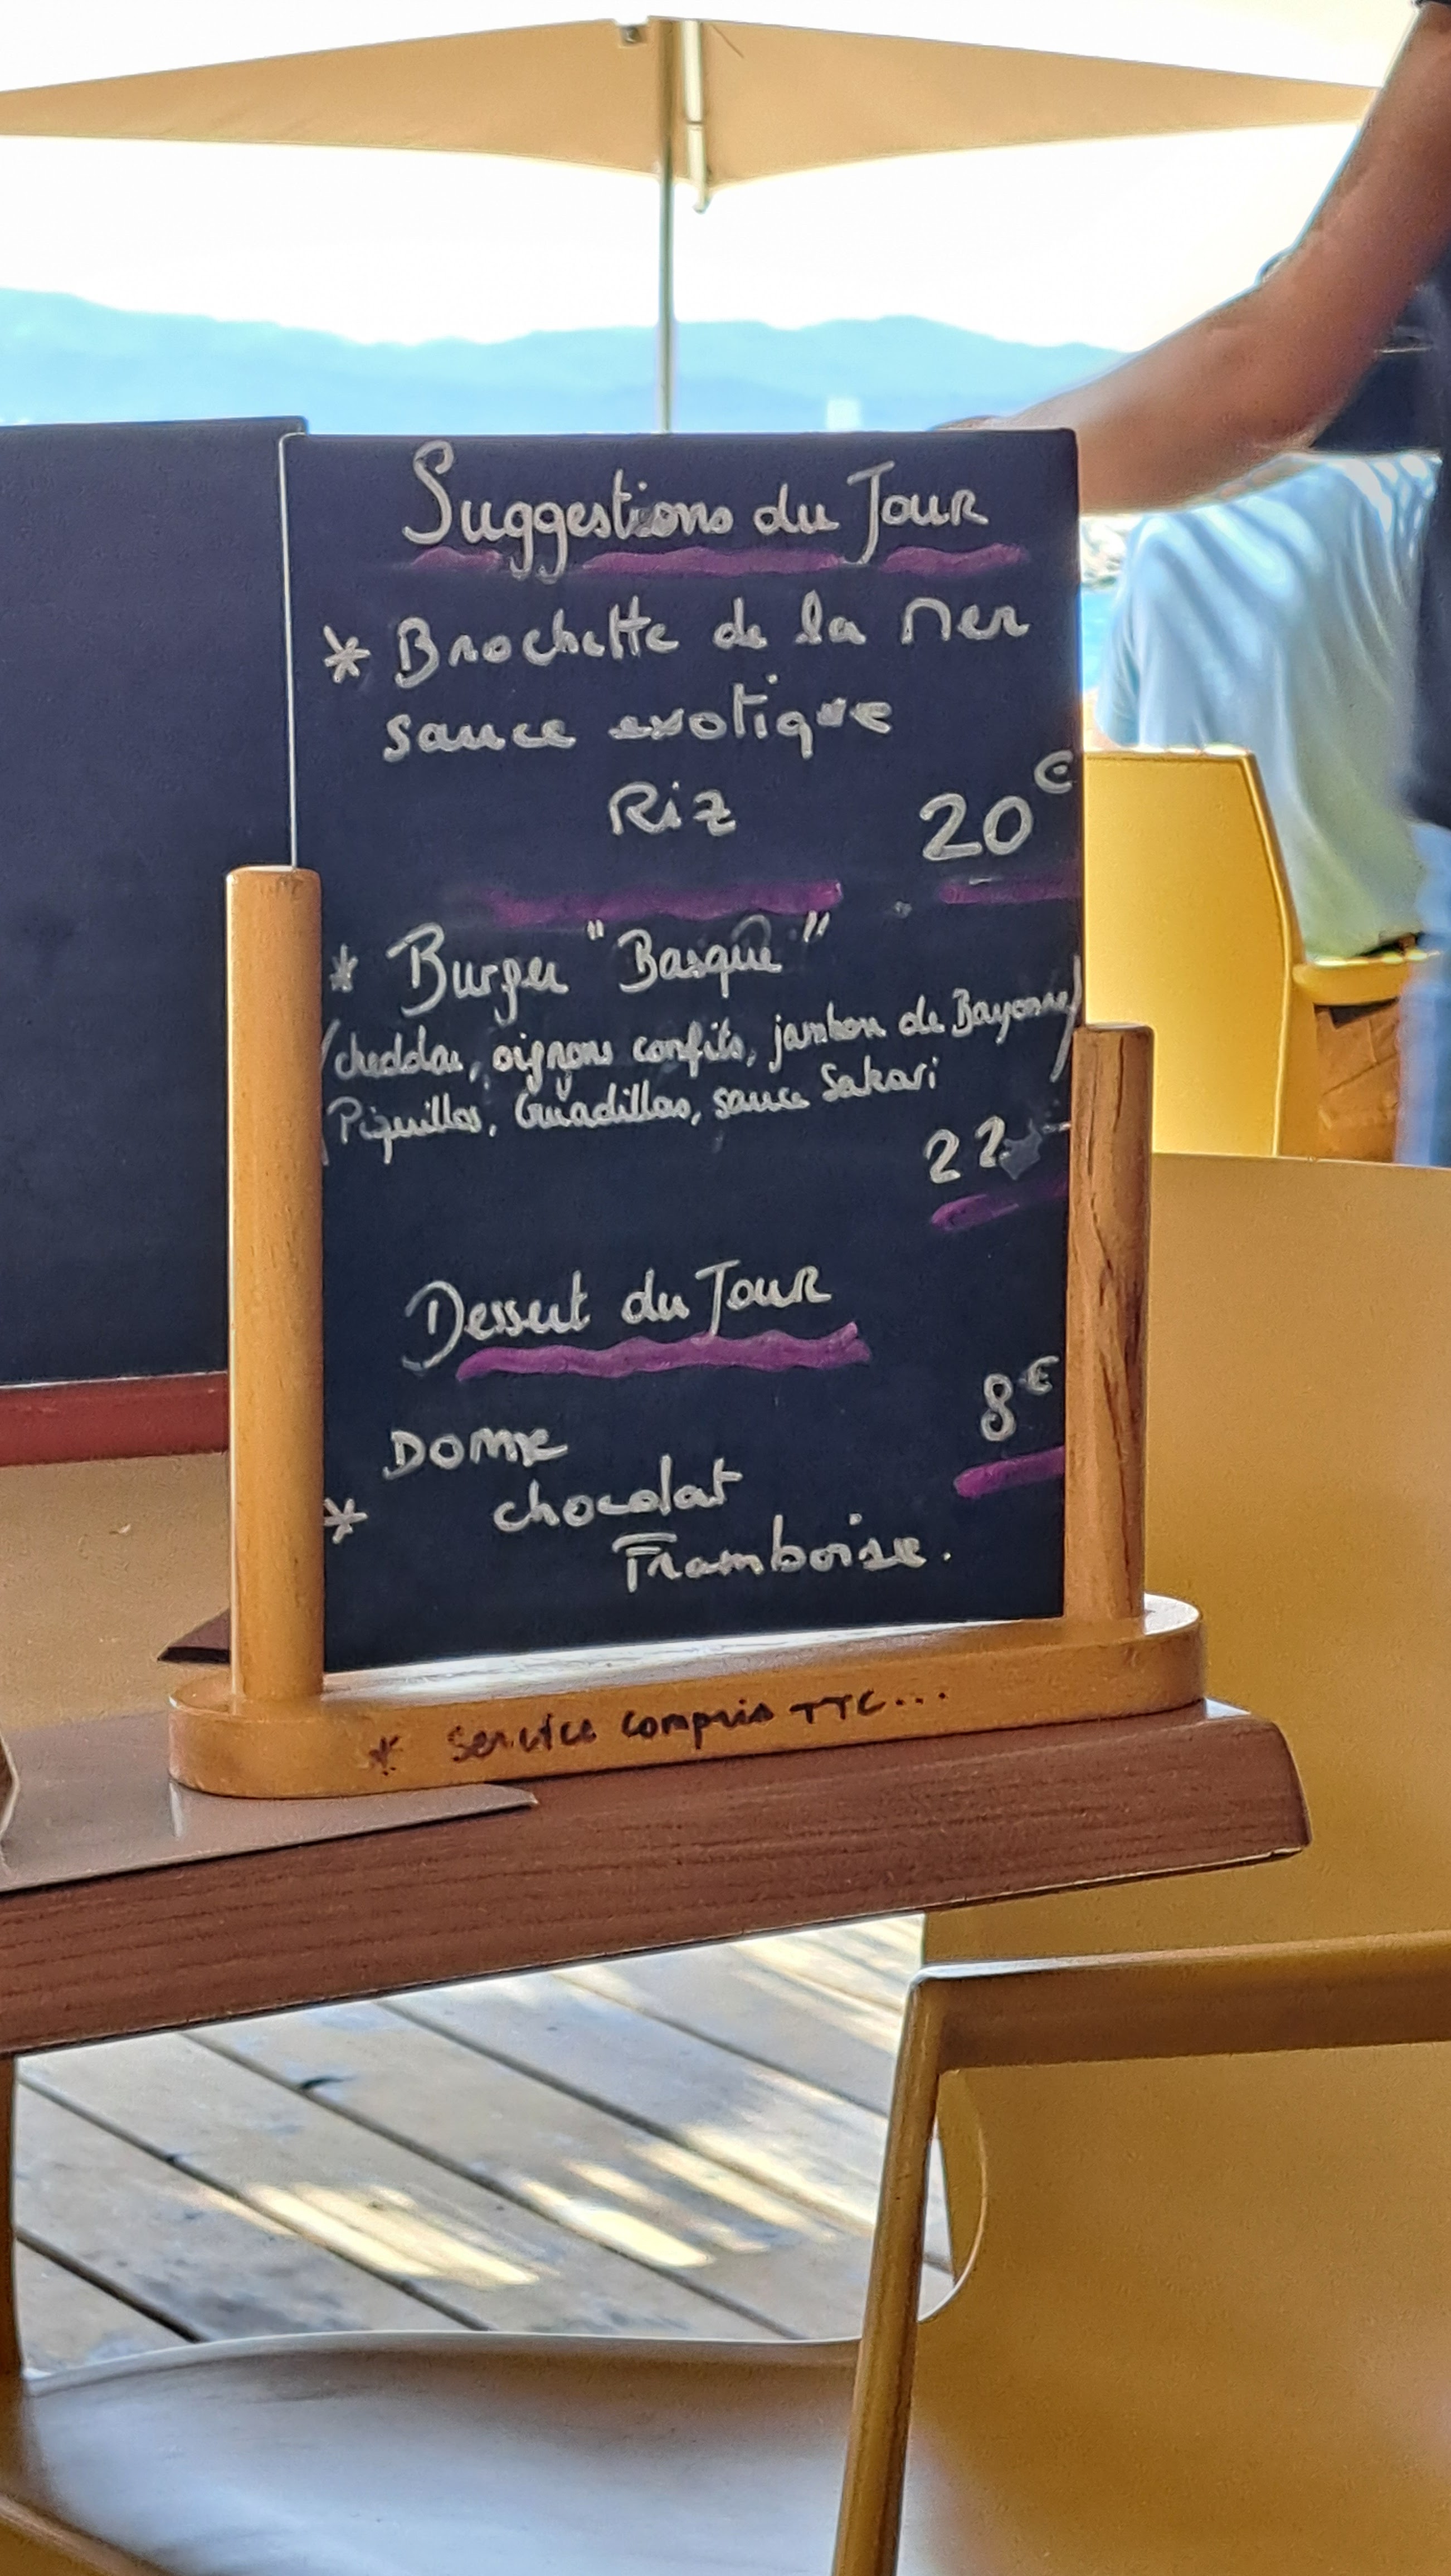 Suggestions du Jour
* Brochette de la Mer
sauce exotique
Riz
20€
* Burger "Basque"
(cheddar, oignons confits, jambon de Bayonne)
Piquillos, sauce Sakari
22
Dessert du Jour
8€
DOME
* chocolat
Framboise.
* Service compris TTC...